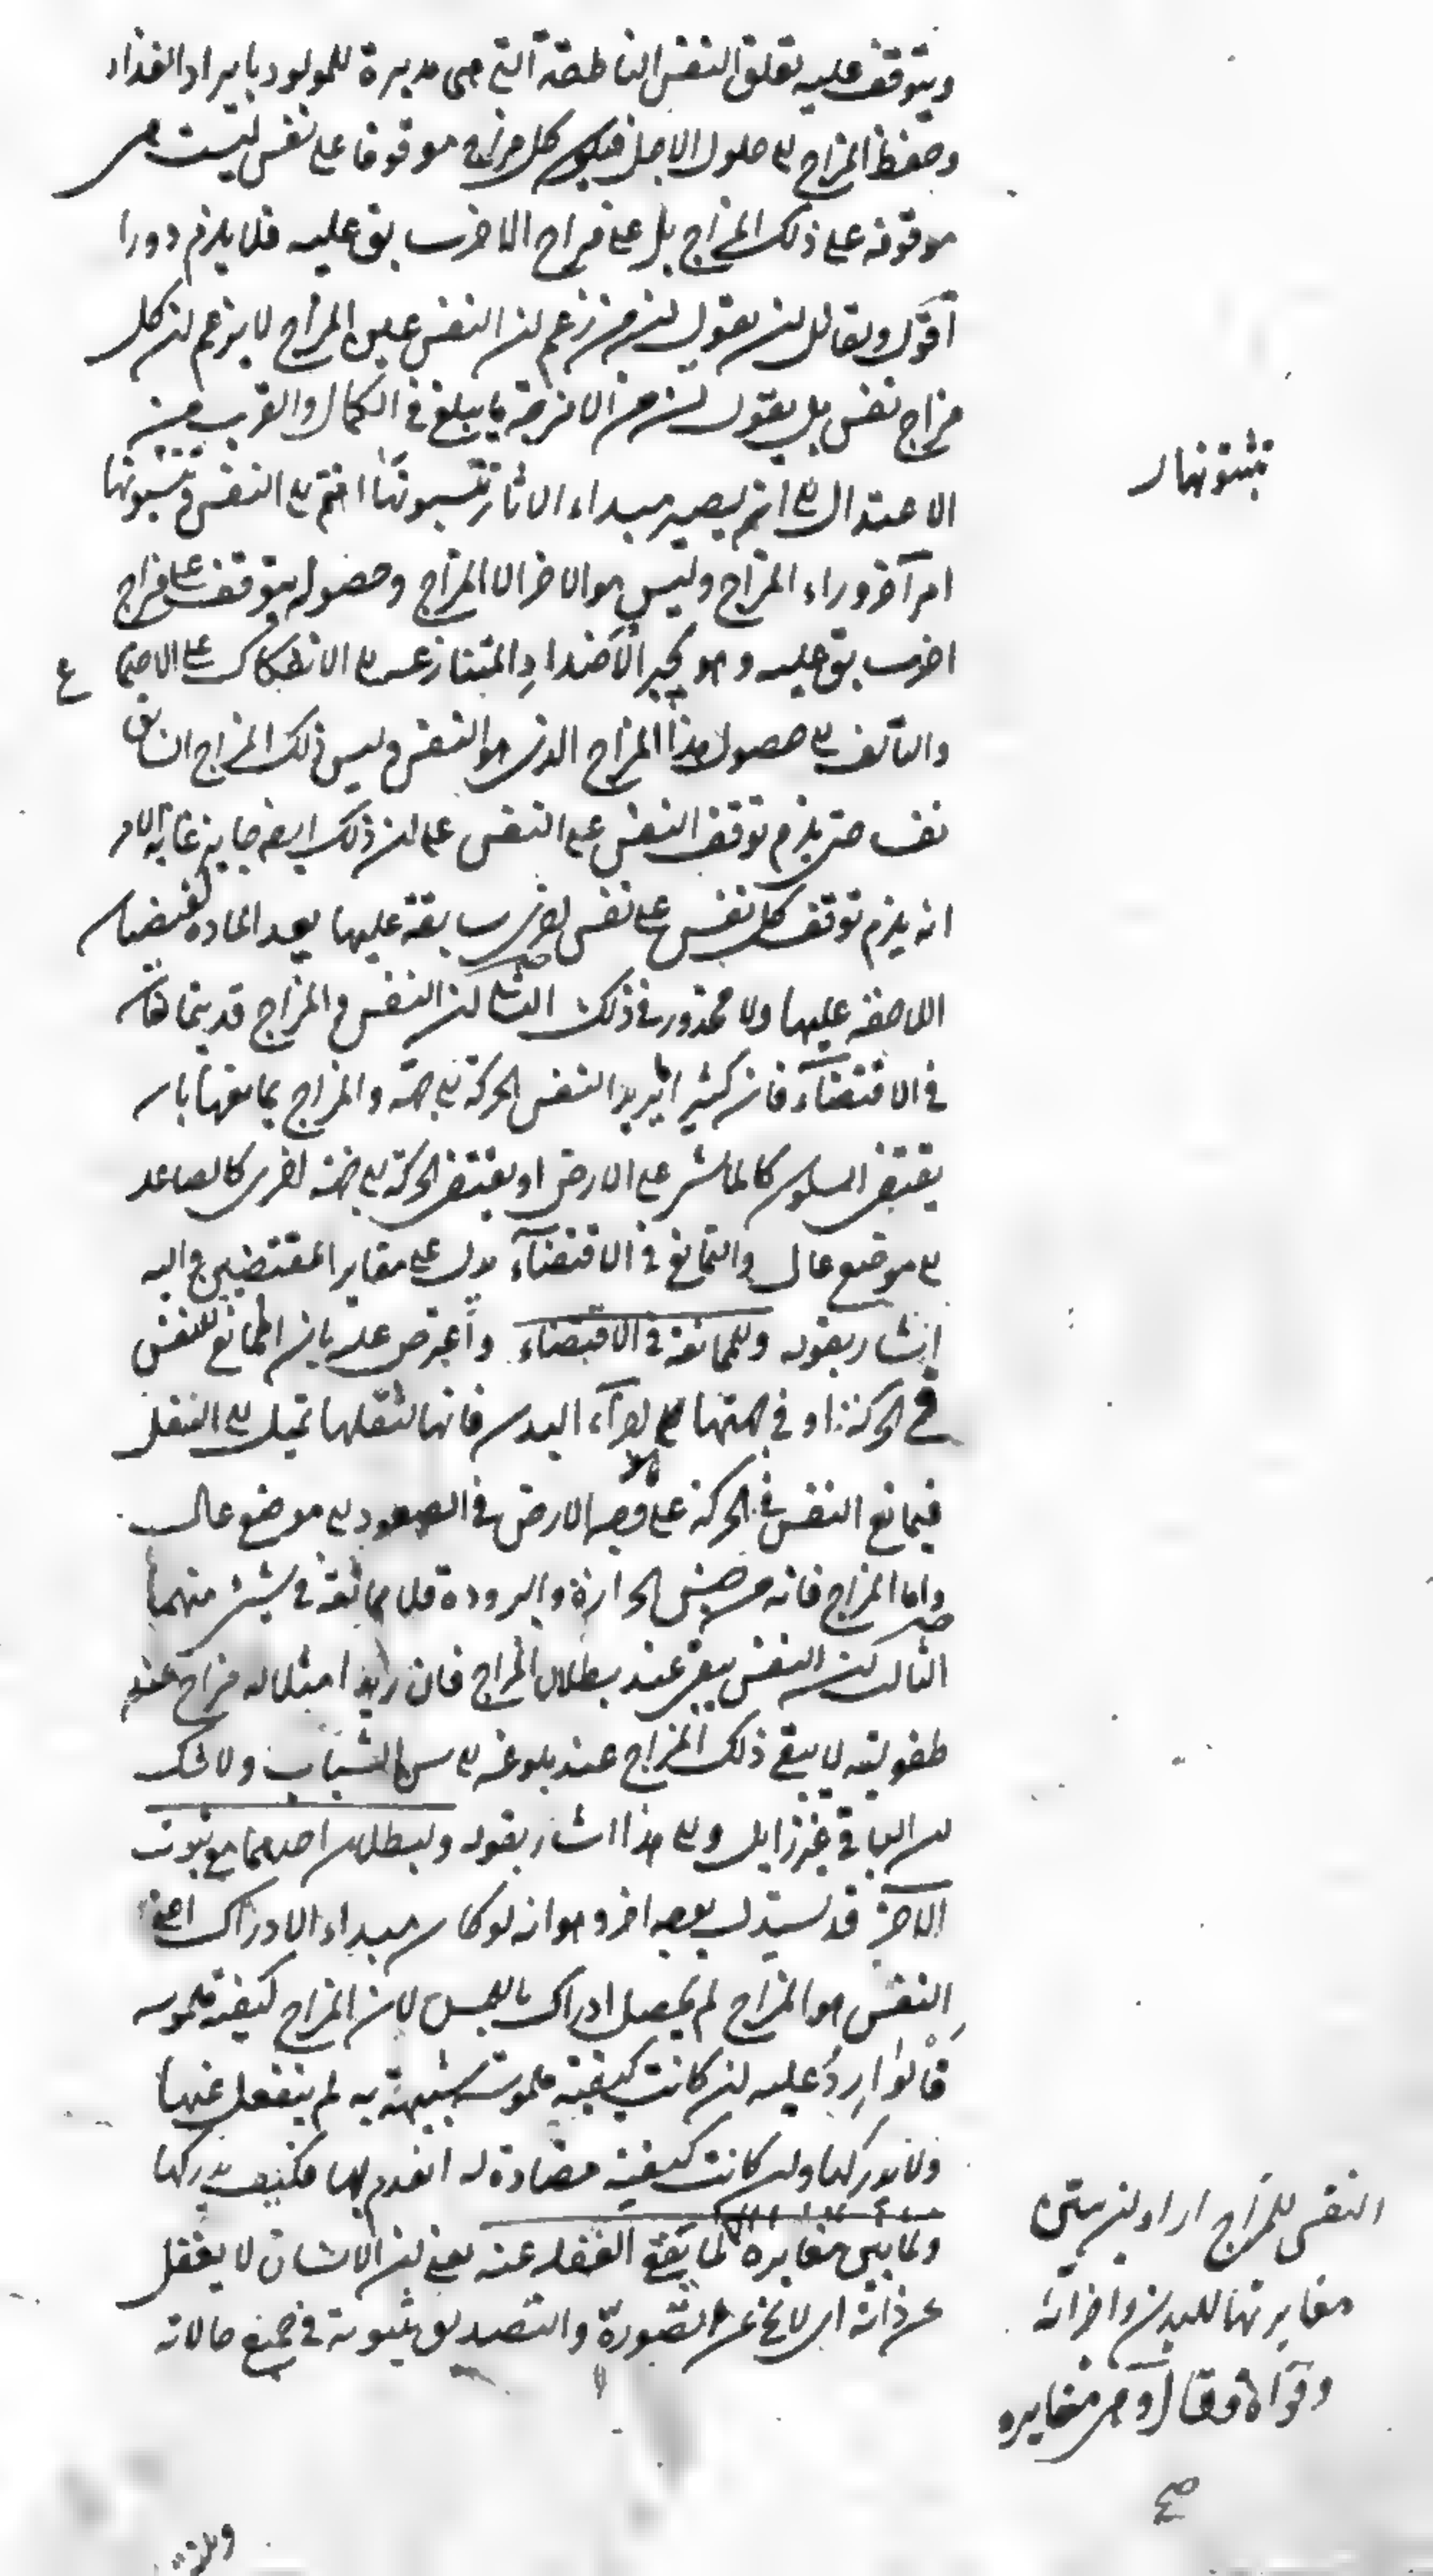 ويتوقف عليه تعلق النفس الناطقة التي هي مدبرة للمولود بايراد الغذاء
وحفظ المزاج الى حلول الاجل فيكون كل مزاج موقوفا على نفس ليست هي
موقوفة على ذلك المزاج بل على مزاج اخر سابق عليه فلا يلزم دورا
اقول ولقائل ان يقول ان من زعم ان النفس عين المزاج لا يزعم ان كل
مزاج نفس بل يقول ان من الامزجة ما يبلغ في الكمال والقرب من
الاعتدال الى ان يصير مبداء الاثار تنسبونها انتم الى النفس وتنسبونها
امرا اخر وراء المزاج وليس هو الاخر الا المزاج وحصوله يتوقف على مزاج
اخر سابق عليه وهو يجبر الاضداد المتنازعة الى الانفكاك على الاجتماع
والتالف الى حصول هذا المزاج الذي هو النفس وليس ذلك المزاج السابق
نفسا حتى يلزم توقف النفس على النفس على ان ذلك ايضا جايز غاية الامر
انه يلزم توقف كل نفس على نفس اخرى سابقة عليها يعد المادة لفيضان
اللاحقة عليها ولا محذور في ذلك الثاني ان النفس والمزاج قد يتمانعان
في الاقتضاء فان كثيرا ما يريد النفس الحركة الى جهة والمزاج يمانعها بان
يقتضي السكون كالماشي على الارض او يقتضي الحركة الى جهة اخرى كالصاعد
الى موضع عال والتمانع في الاقتضاء يدل على مغايرة المقتضيين واليه
اشار بقوله وللممانعة في الاقتضاء واعترض عليه بان الممانع للنفس
في الحركة او في جهتها هي اجزاء البدن فانها لثقلها تميل الى السفل
فيمانع النفس في الحركة على وجه الارض في الصعود الى موضع عال
واما المزاج فانه من جنس الحرارة والبرودة فلا ممانعة في شيء منهما
الثالث ان النفس يبقى عند بطلان المزاج فان زيدا مثلا له مزاج عند
طفوليته لا يبقى ذلك المزاج عند بلوغه الى سن الشباب ولا شك
ان الباقي غير زايل والى هذا اشار بقوله ولبطلان احدهما مع ثبوت
الاخر قد يستدل بوجه اخر وهو انه لو كان مبداء الادراك اعني
النفس هو المزاج لم يحصل ادراك باللمس لان المزاج كيفية ملموسة
فالوارد عليه ان كانت كيفية ملموسة شبيهة به لم ينفعل عنها
ولا يدركها وان كانت كيفية مضادة له انعدم بها فكيف يدركها
ولما بين مغايرة لما يقع الغفلة عنه يعني ان الانسان لا يغفل
عن ذاته اي لا يخ عن تصورة والتصديق بثبوته في جميع حالاته
تثبتونها
النفس للمزاج اراد ان يبين
مغايرتها للبدن واجزائه
وقواه فقال وهي مغايرة
صح